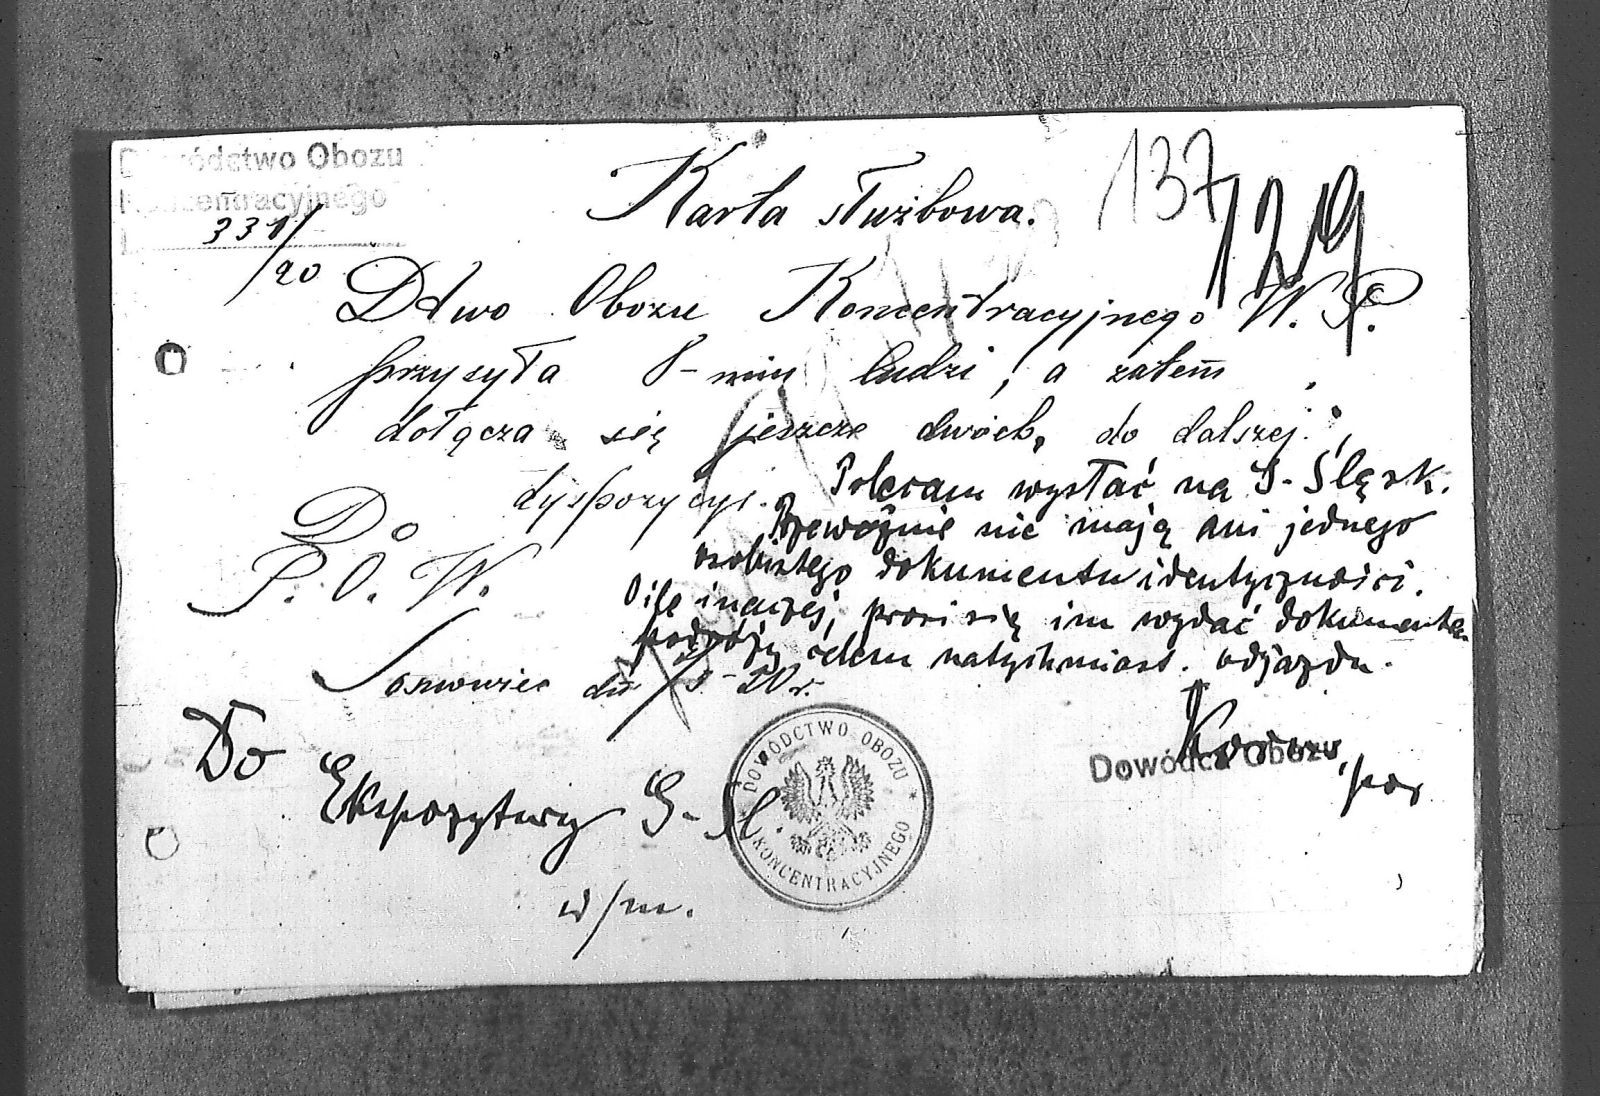 Dowództwo Obozu
Koncentracyjnego
331/20
137
129
Karta służbowa.
Dtwo Obozu Koncentracyjnego W. P.
przysyła 8-miu ludzi, a zatem
dołącza się jeszcze dwóch, do dalszej
dyspozycyi.
Polecam wysłać na G-Śląsk.
Przeważnie nie mają ani jednego
osobistego dokumentu identyczności.
O ile inaczej, prosi się im wydać dokumenta
podróży celem natychmiast. odjazdu.
Do
P. O. W.
Sosnowiec dn 20 r.
Dowódca Obozu
por
Do
Ekspozytury G-Śl.
w/m.
DOWÓDZTWO OBOZU * KONCENTRACYJNEGO *